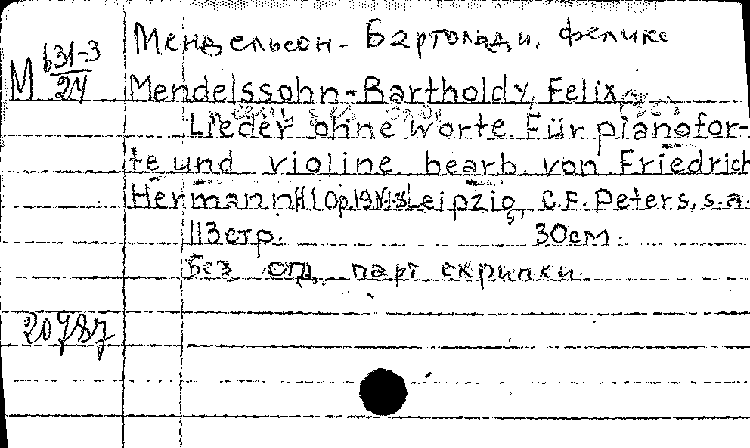 Мендельсон-Бартольди, Феликс
М 631-3/24
Mendelssohn-Bartholdy, Felix
Lieder ohne Worte. Für pianofor-
te und violine bearb. von Friedrich
Hermann Leipzig, C.F. Peters, s.a.
113стр. 30см.
Без отд. парт скрипки